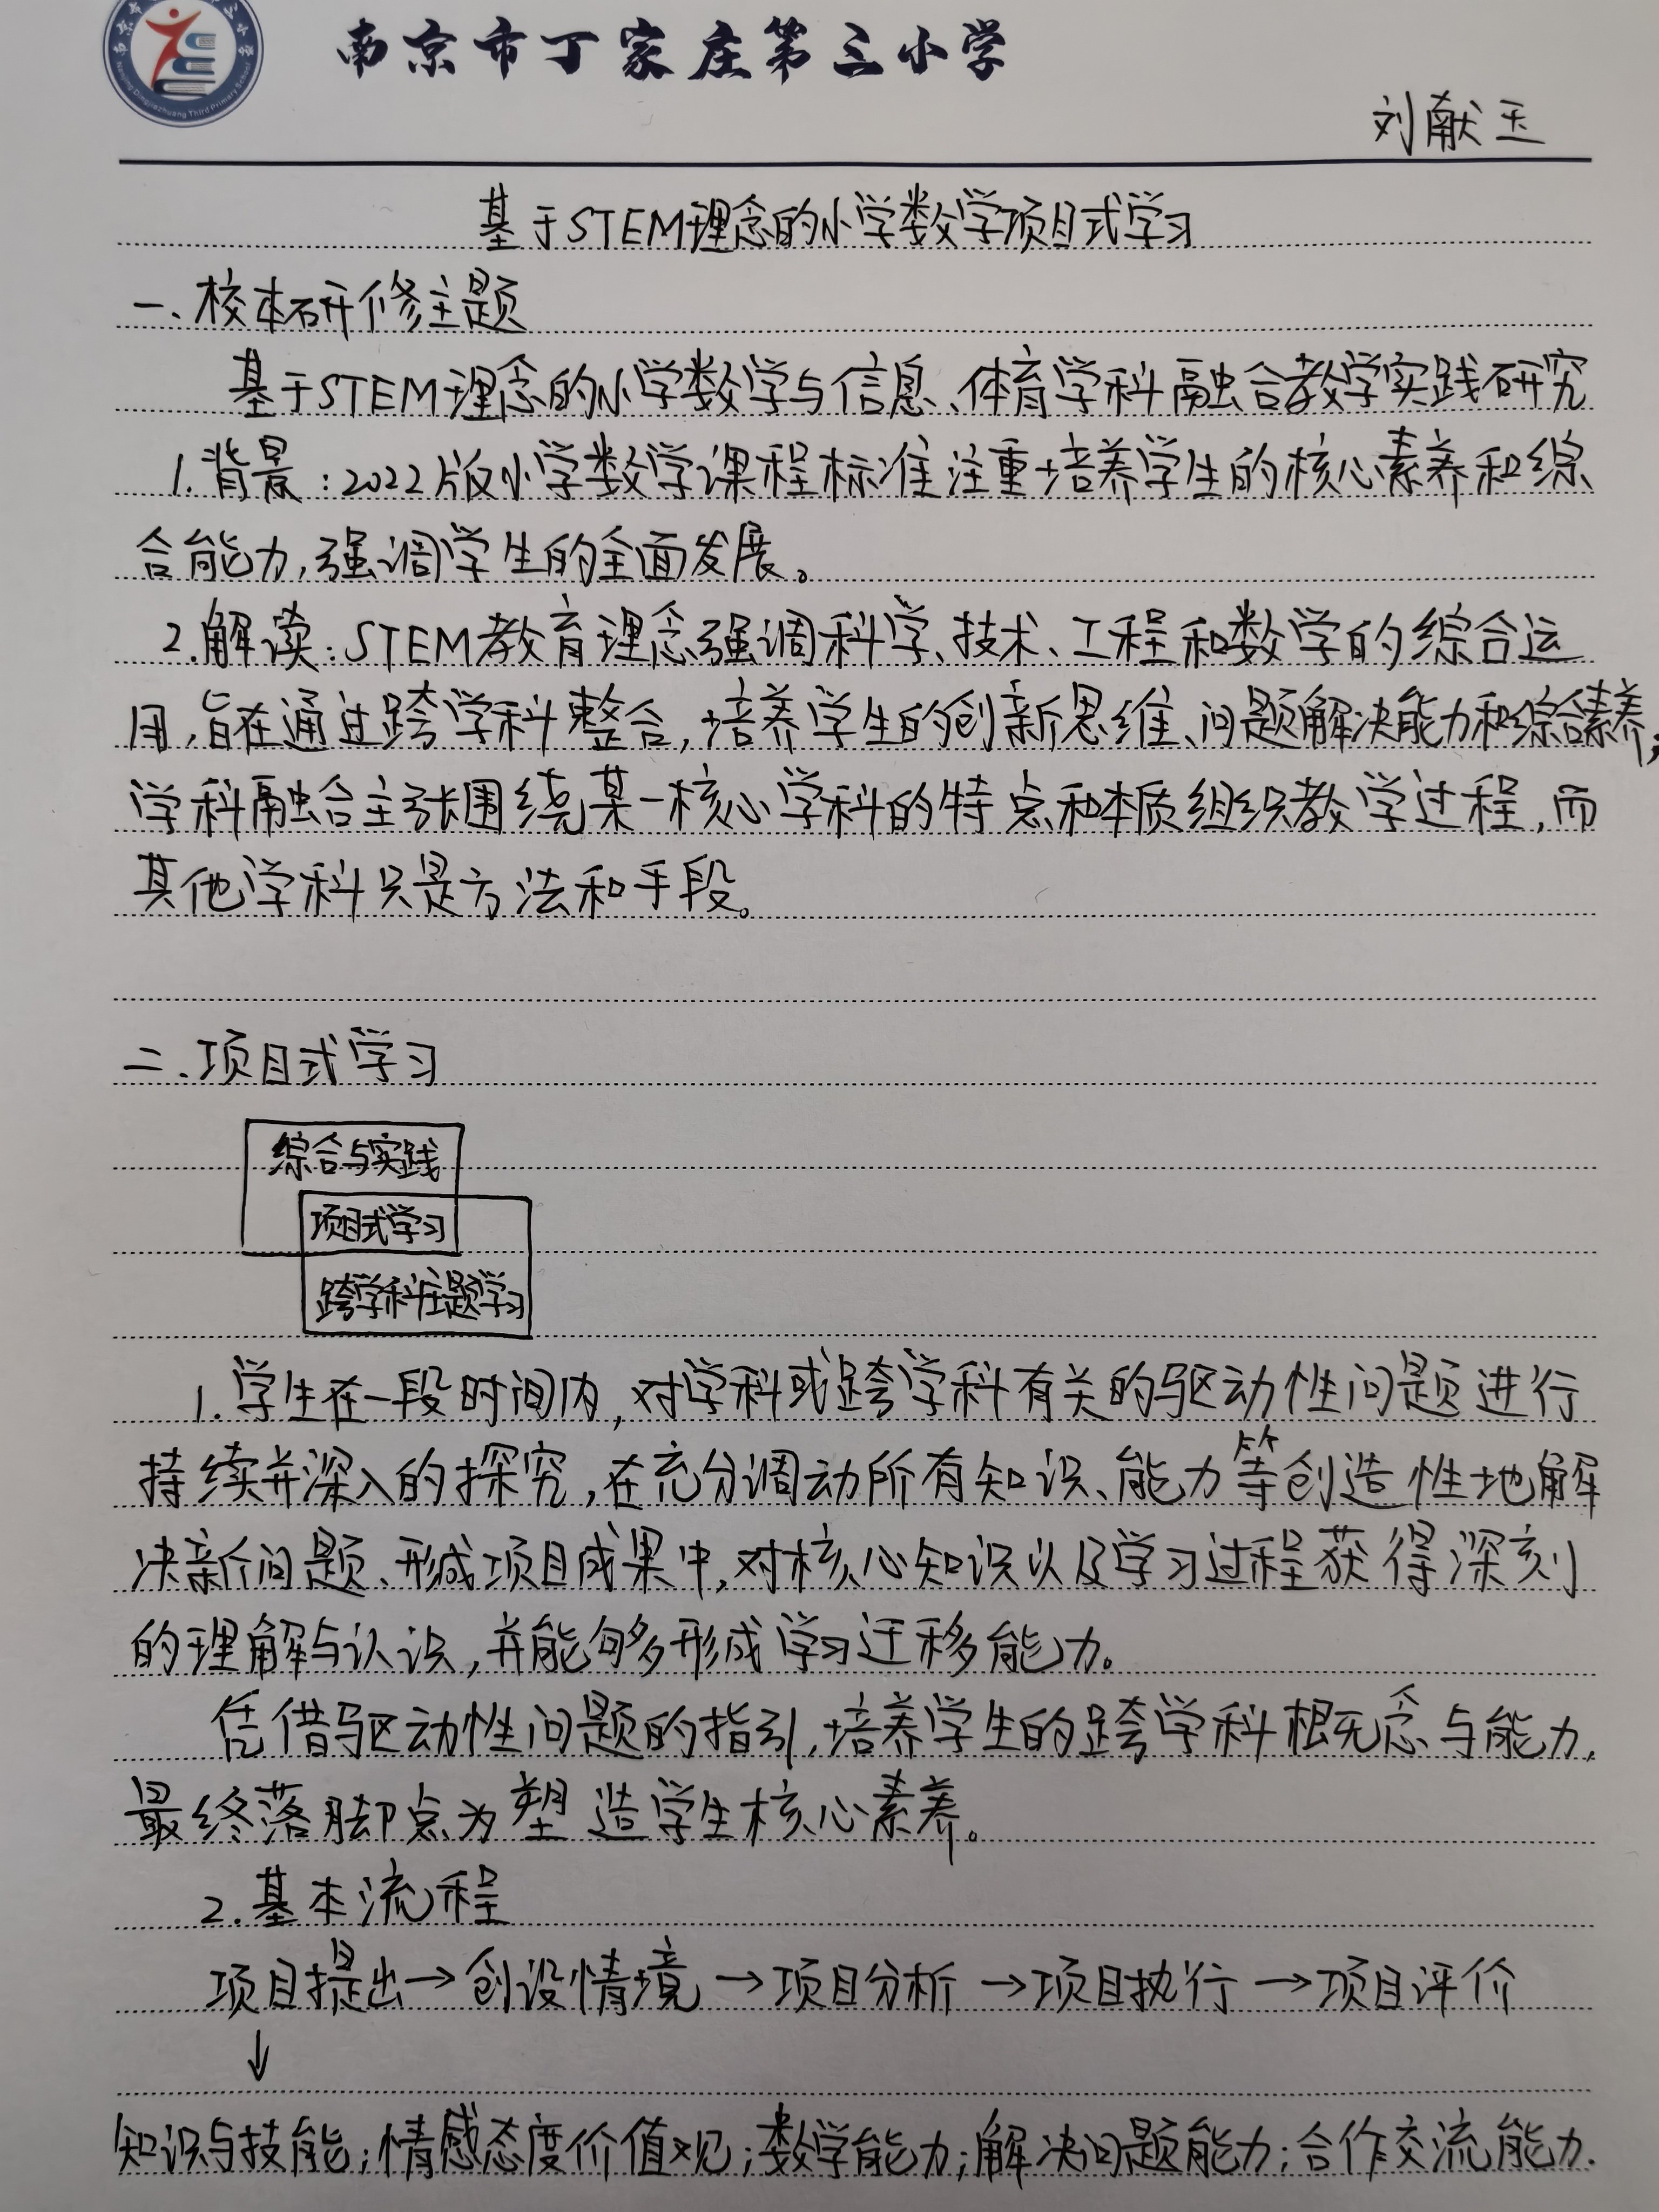 Nanjing Dingjiazhuang Third Primary School
南京市丁家庄第三小学
刘献玉
基于STEM理念的小学数学项目式学习
一、校本研修主题
基于STEM理念的小学数学与信息、体育学科融合教学实践研究
1.背景：2022版小学数学课程标准注重培养学生的核心素养和综
合能力，强调学生的全面发展。
2.解读：STEM教育理念强调科学、技术、工程和数学的综合运
用，旨在通过跨学科整合，培养学生的创新思维、问题解决能力和综合素养；
学科融合主张围绕某一核心学科的特点和本质组织教学过程，而
其他学科只是方法和手段。
二.项目式学习
综合与实践
项目式学习
跨学科主题学习
1.学生在一段时间内，对学科或跨学科有关的驱动性问题进行
持续并深入的探究，在充分调动所有知识、能力等创造性地解
决新问题、形成项目成果中，对核心知识以及学习过程获得深刻
的理解与认识，并能够多形成学习迁移能力。
凭借驱动性问题的指引，培养学生的跨学科概念与能力，
最终落脚点为塑造学生核心素养。
2.基本流程
项目提出→创设情境→项目分析→项目执行→项目评价
↓
知识与技能；情感态度价值观；数学能力；解决问题能力；合作交流能力.